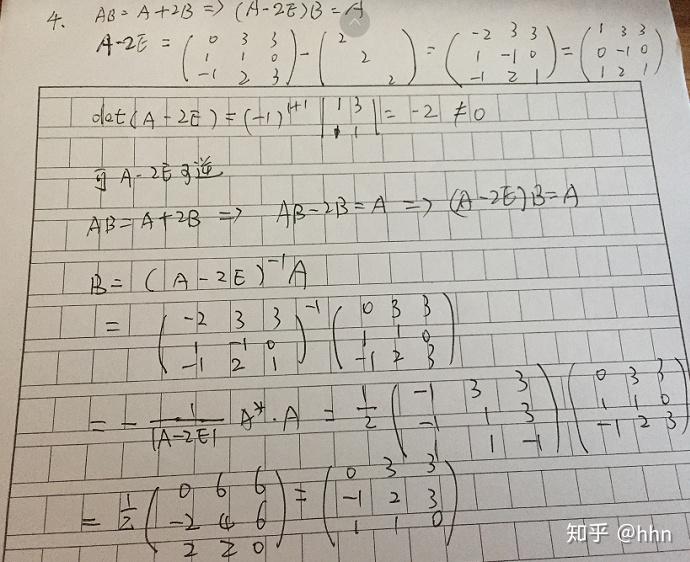 4. AB = A+2B => (A-2E)B = A
A-2E = (0 3 3; 1 1 0; -1 2 3) - (2; 2; 2) = (-2 3 3; 1 -1 0; -1 2 1) = (1 3 3; 0 -1 0; 1 2 1)
det(A-2E) = (-1)^{1+1} |1 3; 1 1| = -2 ≠ 0
A-2E可逆
AB = A+2B => AB-2B = A => (A-2E)B = A
B = (A-2E)^{-1} A
= (-2 3 3; 1 -1 0; -1 2 1)^{-1} (0 3 3; 1 1 0; -1 2 3)
= - 1/|A-2E| A* · A = 1/2 (-1 3 3; -1 1 3; 1 1 -1) (0 3 3; 1 1 0; -1 2 3)
= 1/2 (0 6 6; -2 4 6; 2 2 0) = (0 3 3; -1 2 3; 1 1 0)
知乎 @hhn